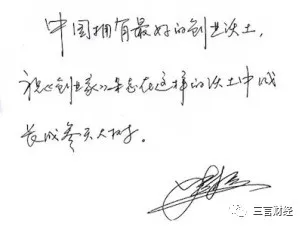 中国拥有最好的创业沃土，
祝《创业家》杂志在这样的沃土中成
长成参天大树。
三言财经